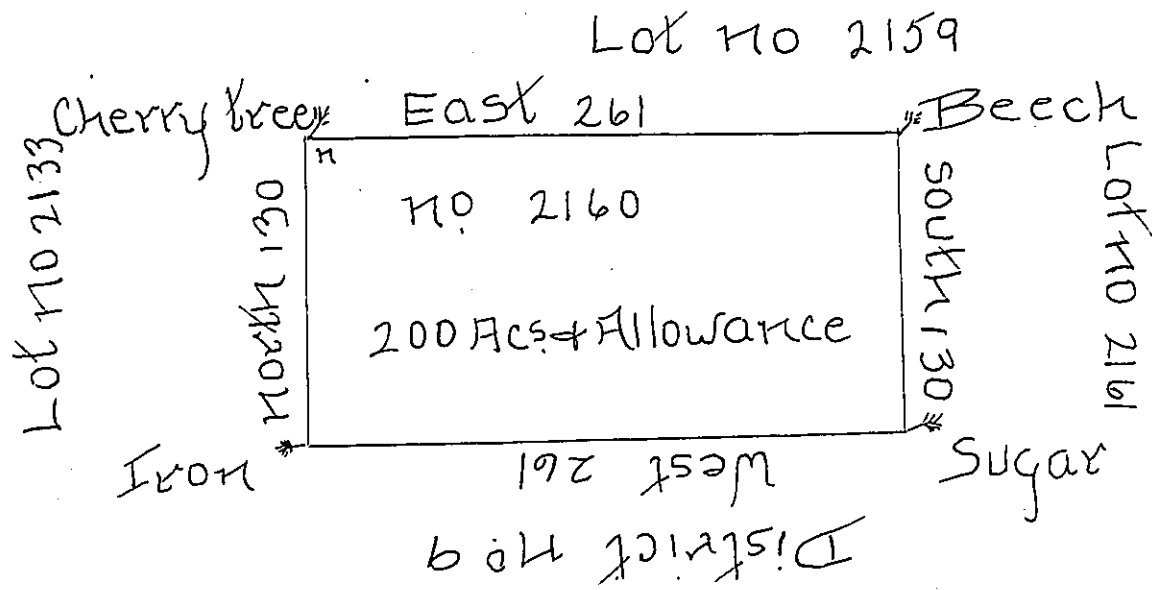 Lot no 2159
Cherry tree
East 261
Beech
n
Lot no 2133
North 130
no 2160
200 Acs & Allowance
South 130
Lot no 2161
Iron
West 261
Sugar
District No 9